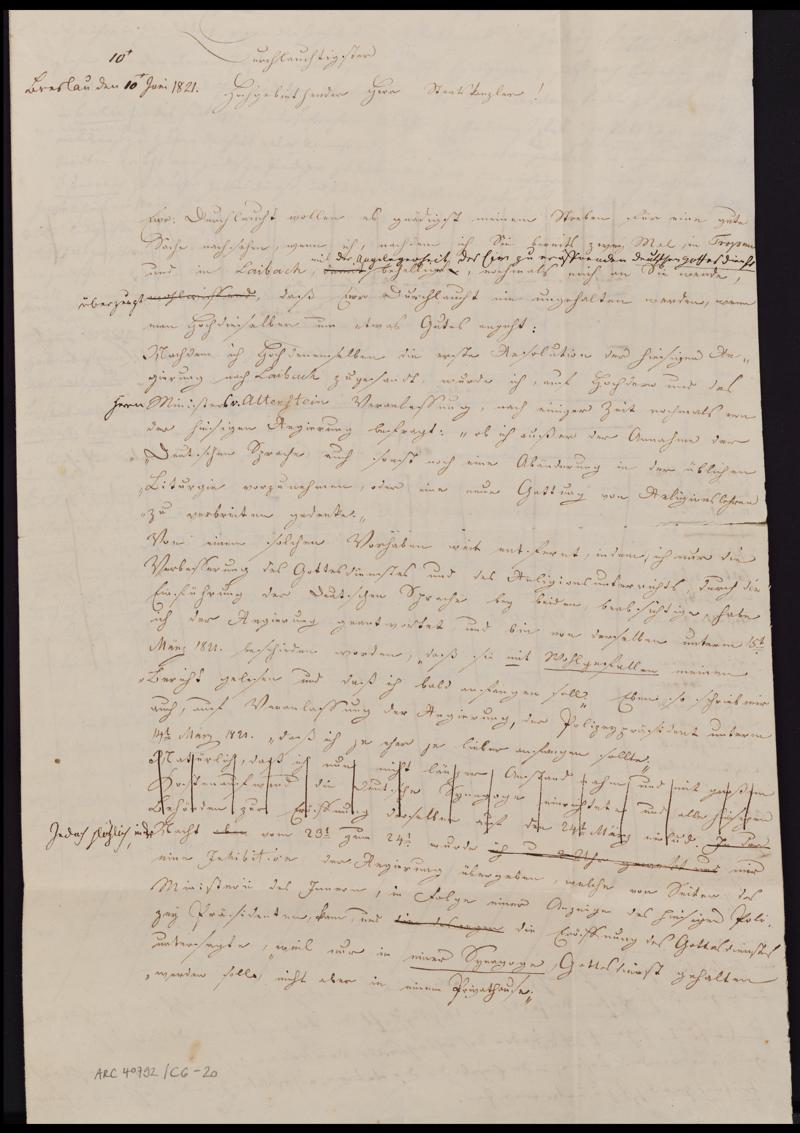 10t
Durchlauchtigster
Breslau den 10t Juni 1821.
Hochgebiethender Herr Staatskanzler!
Ew: Durchlaucht wollen es gnädigst meinem Streben für eine gute
Sache nachsehn, wenn ich, nachdem ich Sie bereits zwey Mal, in Troppau
mit der Angelegenheit, des hier zu eröffnenden deutschen Gottesdienstes
und in Laibach, behelligt, nochmals mich an Sie wende,
überzeugt, daß Ewr Durchlaucht nie ungehalten werden, wenn
man Hochdieselben um etwas Gutes angeht:
Nachdem ich Hochdenenselben die erste Resolution der hiesigen Re-
gierung nach Laibach zugesandt, wurde ich, auf Hochdero und des
Herrn Ministers v. Altenstein Veranlassung, nach einiger Zeit nochmals von
der hiesigen Regierung befragt: „ob ich außer der Annahme der
„Deutschen Sprache auch sonst noch eine Abänderung in der üblichen
„Liturgie vorzunehmen, oder eine neue Gattung von Religionslehren
„zu verbreiten gedenke."
Von einem solchen Vorhaben weit entfernt, indem ich nur die
Verbesserung des Gottesdienstes und des Religionsunterrichts, durch die
Einführung der Deutschen Sprache bey beiden, beabsichtige, habe
ich der Regierung geantwortet und bin von derselben unterm 15t
März 1821. beschieden worden, „daß sie mit Wohlgefallen meinen
„Bericht gelesen und daß ich bald anfangen soll" Eben so schrieb mir
auch, auf Veranlassung der Regierung, der Polizeypräsident unterm
14t März 1821. „daß ich je eher je lieber anfangen sollte."
Natürlich, daß ich nun nicht länger Anstand nahm und mit großem
Kostenaufwand die Deutsche Synagoge einrichtete und alle hiesigen
Behörden zur Eröffnung derselben auf den 24t März einlud. In der
Jedoch plözlich, in der Nacht vom 23t zum 24t wurde ich mir
eine Inhibition der Regierung übergeben, welche von Seiten des
Ministerii des Innern, in Folge einer Anzeige des hiesigen Poli-
zey Präsidenten, kam, und die Eröffnung des Gottesdienstes
untersagte, „weil nur in einer Synagoge Gottesdienst gehalten
„werden solle, nicht aber in einem Privathause."
ARC 40792/C6-20